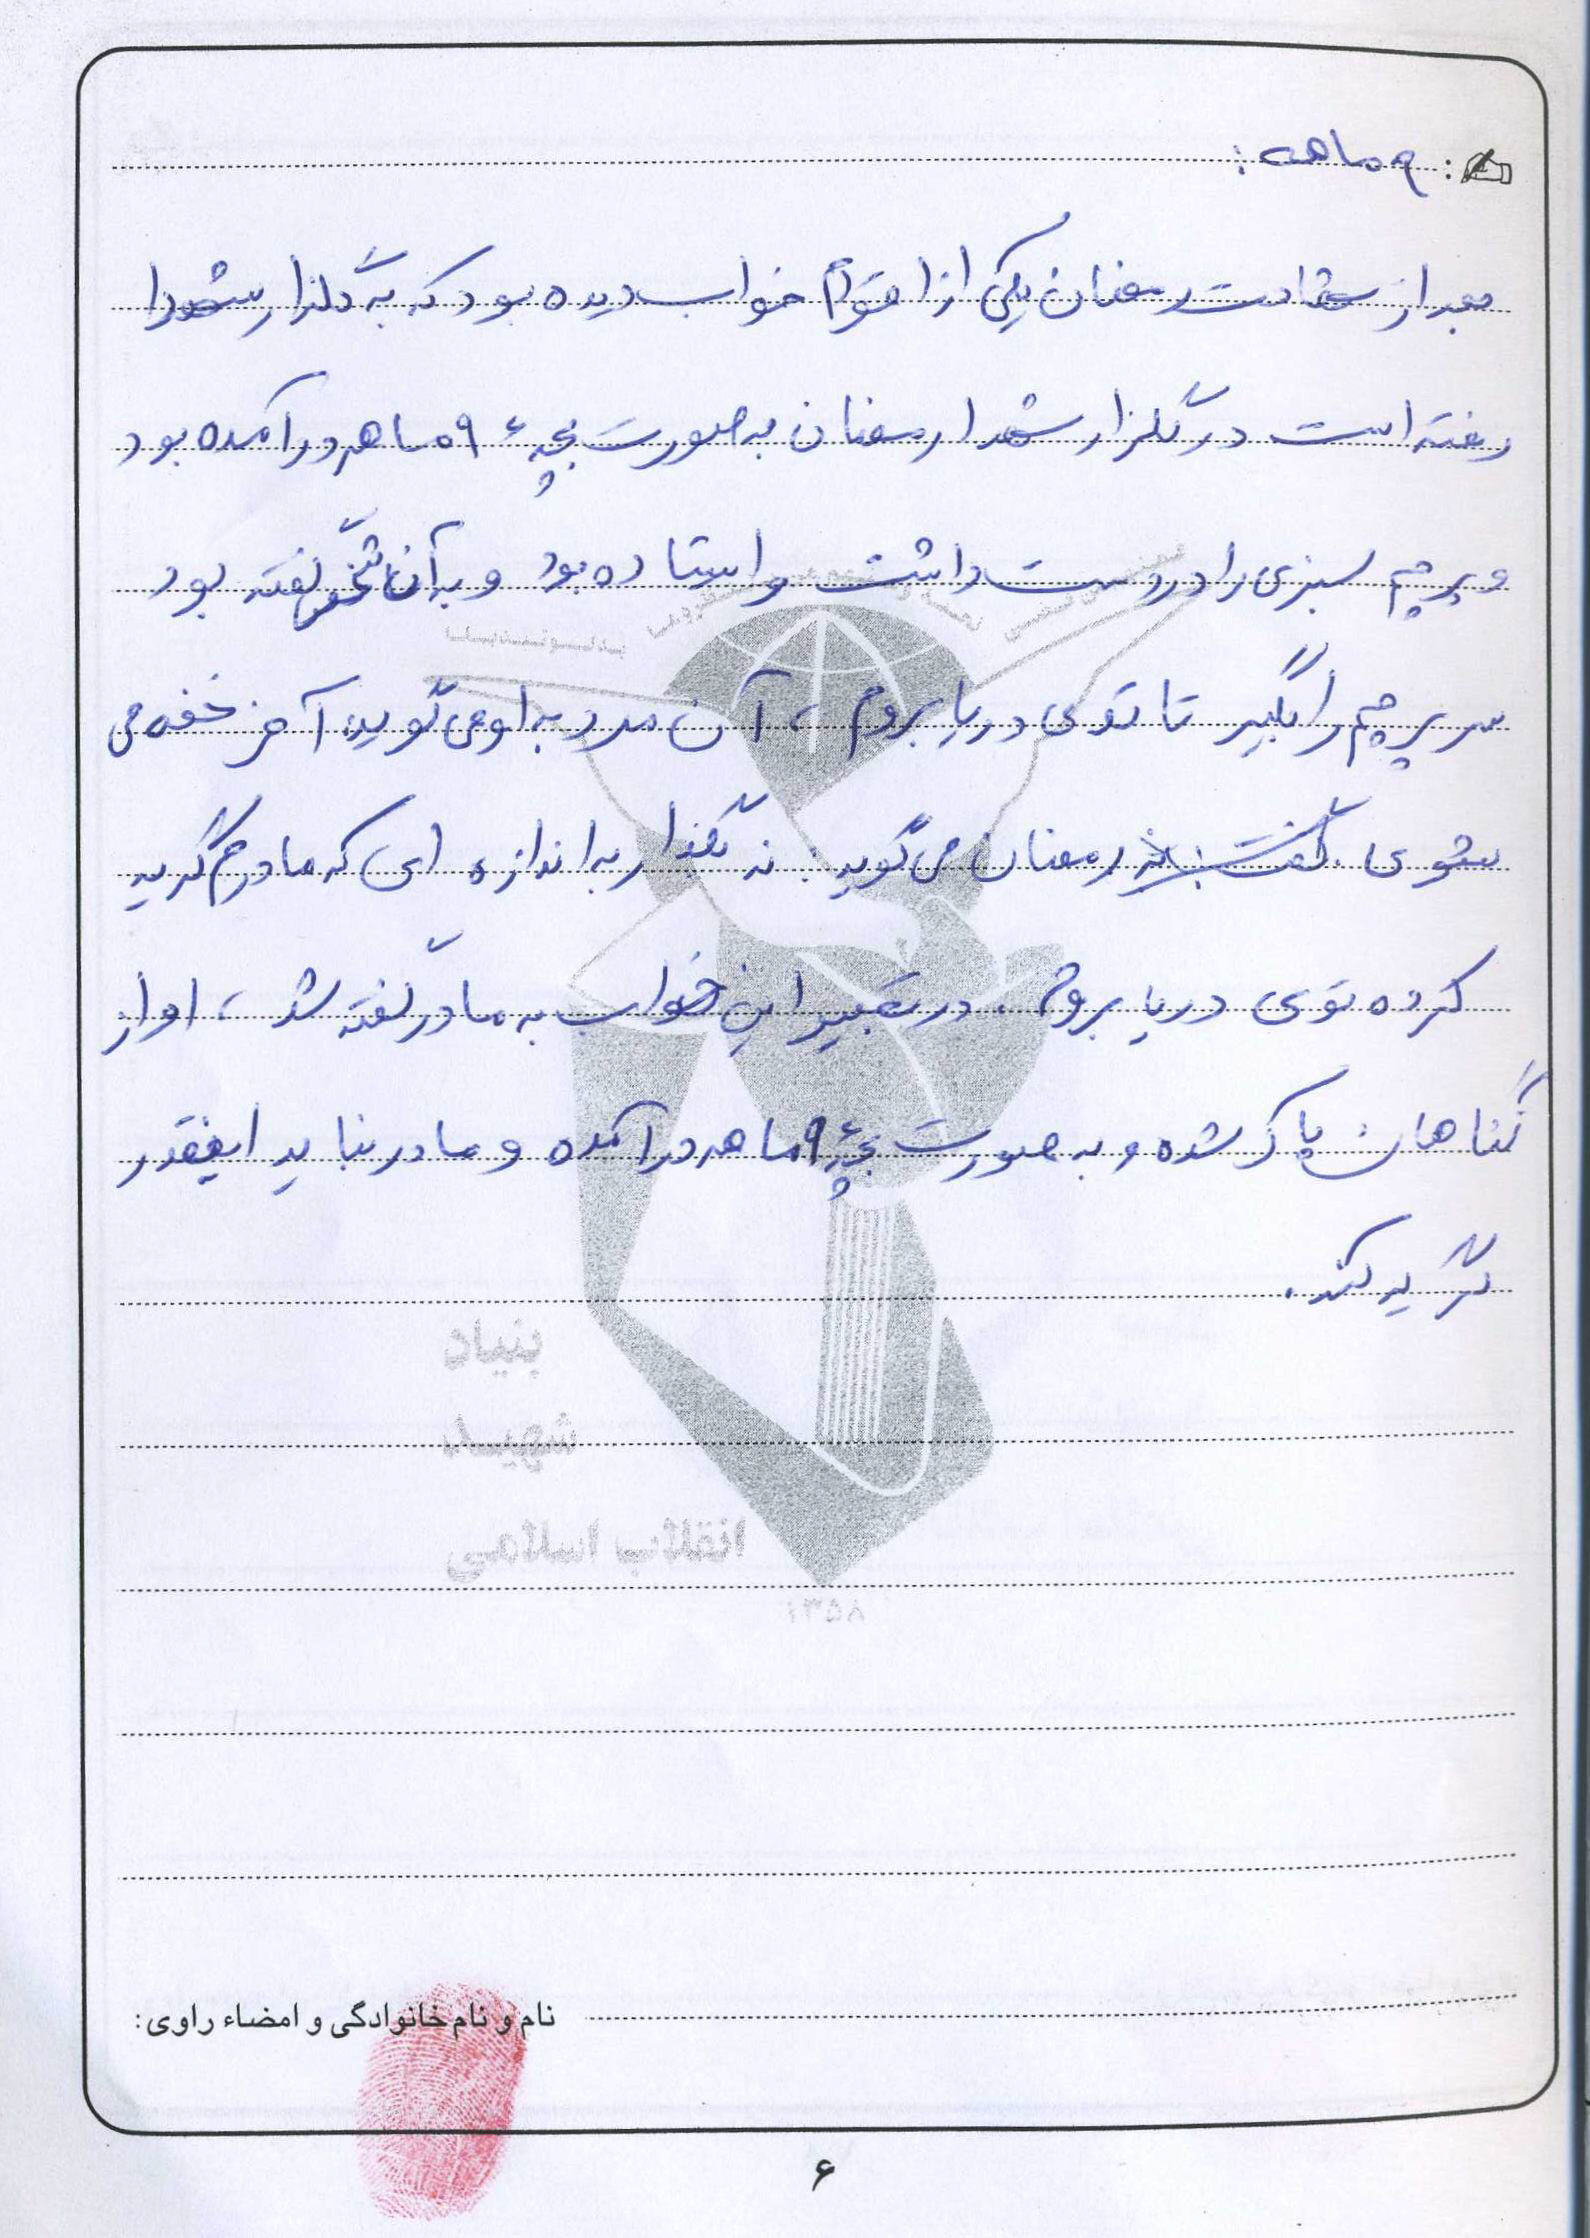 ۹ ماهه :
بعد از شهادت رمضان یکی از اقوام خواب دیده بود که به گلزار شهدا
رفته است در گلزار شهدا رمضان به صورت بچه ۹ ماهه در آمده بود
و پرچم سبزی را در دست داشت و ایستاده بود و به آن شخص گفته بود
سر پرچم را بگیر تا توی دریا بروم ، آن مرد به او می گوید آخر خفه می
شوی . رمضان می گوید : نه بگذار به اندازه ای که مادرم گریه
کرده توی دریا بروم . در تعبیر این خواب به مادر گفته شد ، او از
گناهان پاک شده و به صورت بچه ۹ ماهه در آمده و مادر نباید اینقدر
گریه کند .
بنیاد
شهید
انقلاب اسلامی
۱۳۵۸
نام و نام خانوادگی و امضاء راوی:
۶